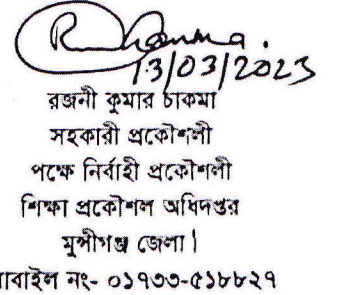 13/03/2023
রজনী কুমার চাকমা
সহকারী প্রকৌশলী
পক্ষে নির্বাহী প্রকৌশলী
শিক্ষা প্রকৌশল অধিদপ্তর
মুন্সীগঞ্জ জেলা।
াবাইল নং- ০১৭৩৩-৫১৮৮২৭